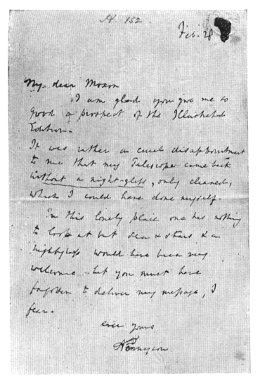 Feb. 28
My dear Moxon
I am glad you give me so
good a prospect of the Illustrated
Edition.
It was rather a cruel disappointment
to me that my Telescope came back
without a night-glass, only cleaned,
which I could have done myself.
In this lonely place one has nothing
to look at but sea & stars & a
nightglass would have been very
welcome - but you must have
forgotten to deliver my message, I
fear.
ever yours
ATennyson